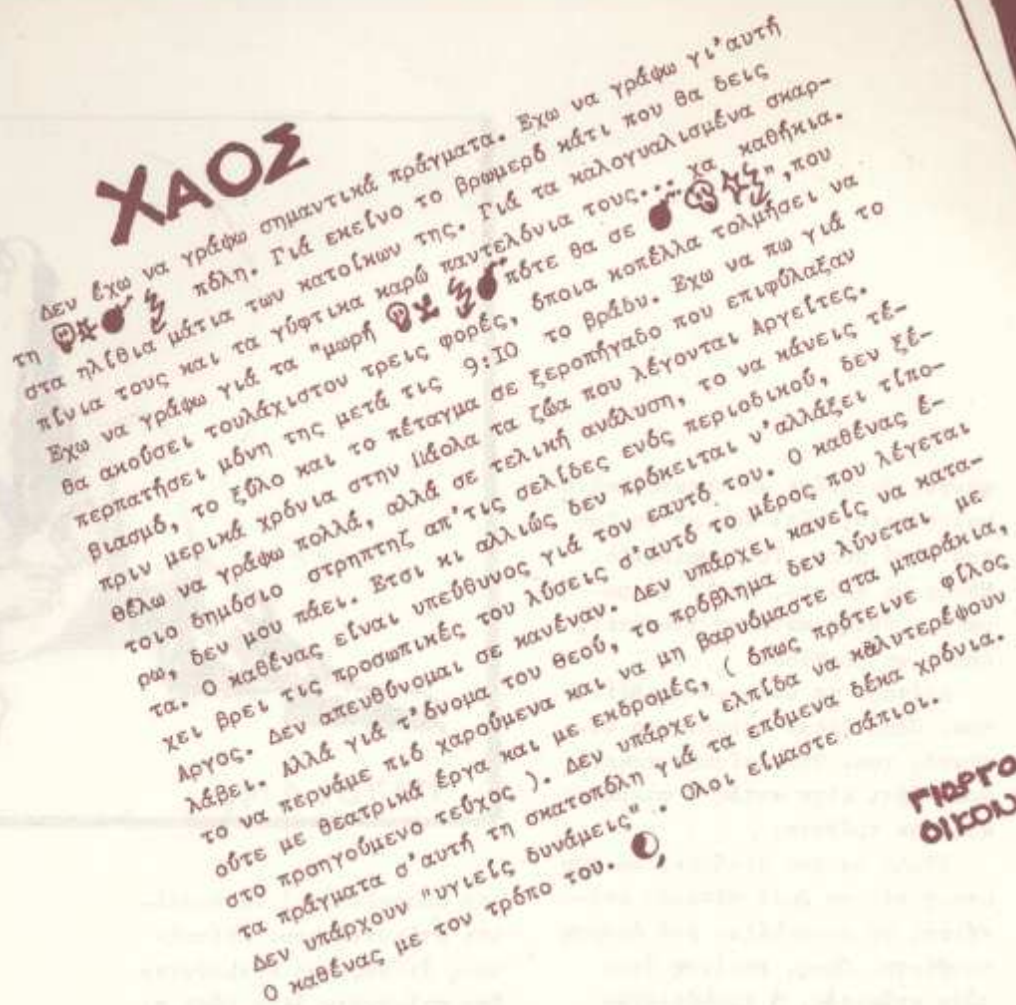 ΧΑΟΣ
Δεν έχω να γράφω σημαντικά πράγματα. Εχω να γράφω γι'αυτή
τη πόλη. Γιά εκείνο το βρωμερό κάτι που θα δεις
στα ηλίθια μάτια των κατοίκων της. Γιά τα καλογυαλισμένα σκαρ-
πίνια τους και τα γύφτικα καρώ παντελόνια τους... χα καθήκια.
Εχω να γράφω γιά τα "μωρή πότε θα σε ",που
θα ακούσει τουλάχιστον τρεις φορές, όποια κοπέλλα τολμήσει να
περπατήσει μόνη της μετά τις 9:10 το βράδυ. Εχω να πω γιά το
βιασμό, το ξύλο και το πέταγμα σε ξεροπήγαδο που επιφύλαξαν
πριν μερικά χρόνια στην όλα τα ζώα που λέγονται Αργείτες.
θέλω να γράφω πολλά, αλλά σε τελική ανάλυση, το να κάνεις τέ-
τοιο δημόσιο στρηπτηζ απ'τις σελίδες ενός περιοδικού, δεν ξέ-
ρω, δεν μου πάει. Ετσι κι αλλιώς δεν πρόκειται ν'αλλάξει τίπο-
τα. Ο καθένας είναι υπεύθυνος γιά τον εαυτό του. Ο καθένας έ-
χει βρει τις προσωπικές του λύσεις σ'αυτό το μέρος που λέγεται
Αργος. Δεν απευθύνομαι σε κανέναν. Δεν υπάρχει κανείς να κατα-
λάβει. Αλλά γιά τ'όνομα του θεού, το πρόβλημα δεν λύνεται με
το να περνάμε πιό χαρούμενα και να μη βαρυόμαστε στα μπαράκια,
ούτε με θεατρικά έργα και με εκδρομές, ( όπως πρότεινε φίλος
στο προηγούμενο τεύχος ). Δεν υπάρχει ελπίδα να καλυτερέψουν
τα πράγματα σ'αυτή τη σκατοπόλη γιά τα επόμενα δέκα χρόνια.
Δεν υπάρχουν "υγιείς δυνάμεις". Ολοι είμαστε σάπιοι.
Ο καθένας με τον τρόπο του.